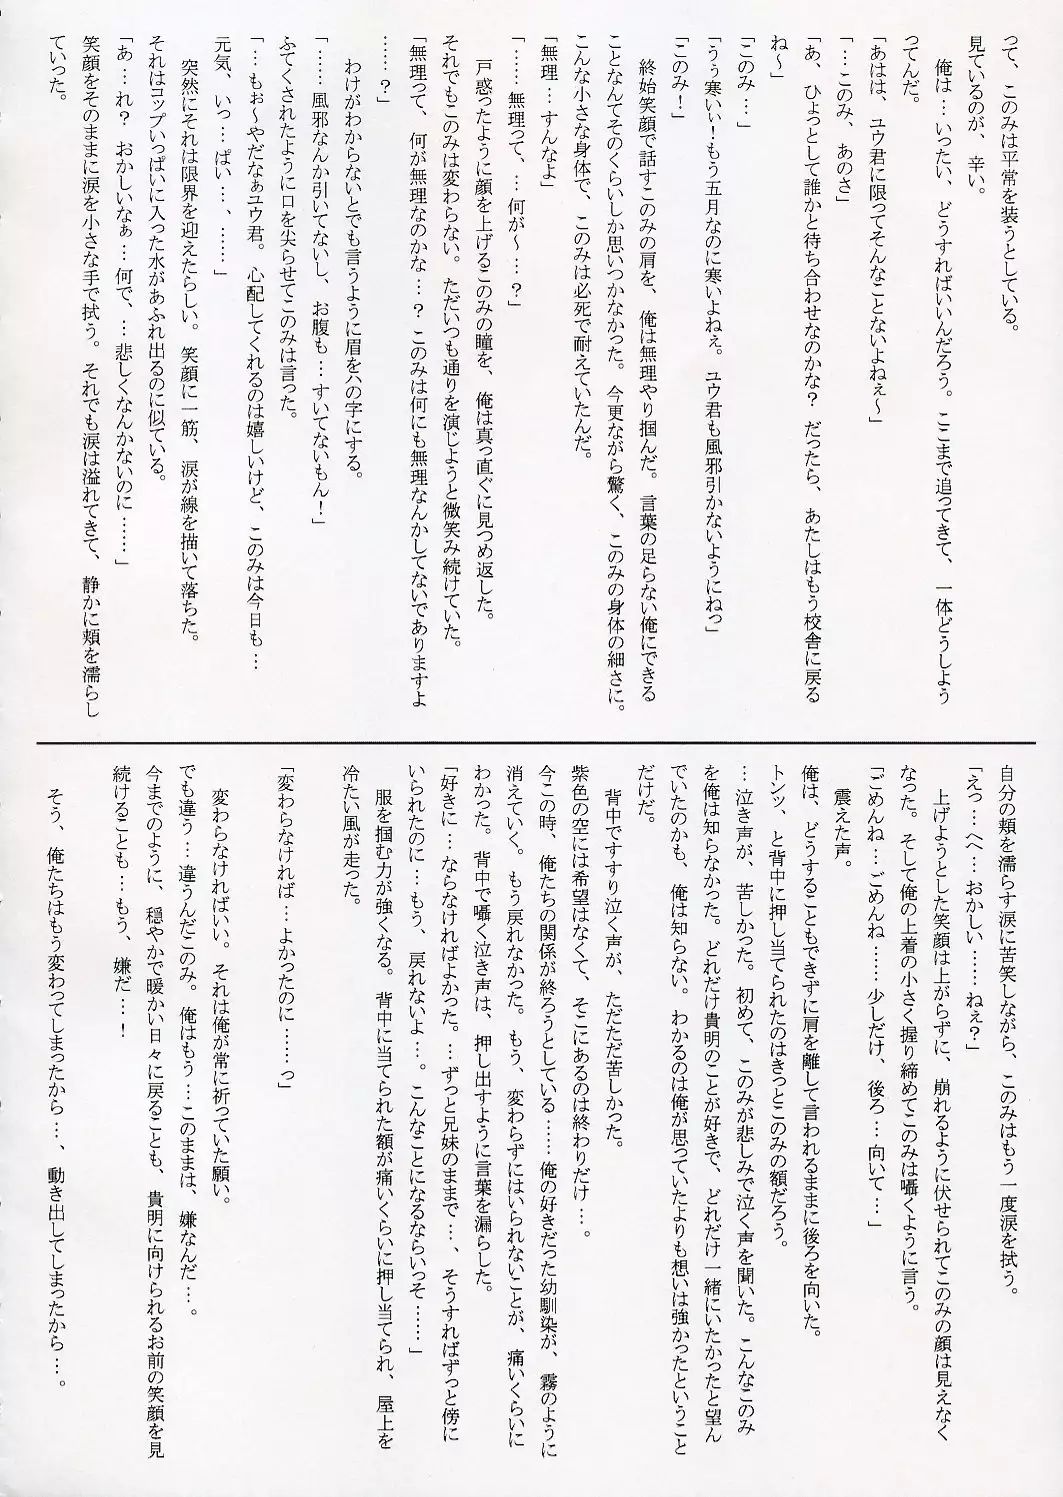 って、このみは平常を装うとしている。
見ているのが、辛い。
俺は…いったい、どうすればいいんだろう。ここまで追ってきて、一体どうしよう
ってんだ。
「あはは、ユウ君に限ってそんなことないよねぇ〜」
「…このみ、あのさ」
「あ、ひょっとして誰かと待ち合わせなのかな？だったら、あたしはもう校舎に戻る
ね〜」
「このみ…」
「うぅ寒いぃ！もう五月なのに寒いよねぇ。ユウ君も風邪引かないようにねっ」
「このみ！」
終始笑顔で話すこのみの肩を、俺は無理やり掴んだ。言葉の足らない俺にできる
ことなんてそのくらいしか思いつかなかった。今更ながら驚く、このみの身体の細さに。
こんな小さな身体で、このみは必死で耐えていたんだ。
「無理…すんなよ」
「……無理って、…何が〜…？」
戸惑ったように顔を上げるこのみの瞳を、俺は真っ直ぐに見つめ返した。
それでもこのみは変わらない。ただいつも通りを演じようと微笑み続けていた。
「無理って、何が無理なのかな…？このみは何にも無理なんかしてないでありますよ
……？」
わけがわからないとでも言うように眉をハの字にする。
「……風邪なんか引いてないし、お腹も…すいてないもん！」
ふてくされたように口を尖らせてこのみは言った。
「…もぉ〜やだなぁユウ君。心配してくれるのは嬉しいけど、このみは今日も…
元気、いっ…ぱい…、……」
突然にそれは限界を迎えたらしい。笑顔に一筋、涙が線を描いて落ちた。
それはコップいっぱいに入った水があふれ出るのに似ている。
「あ…れ？おかしいなぁ…何で、…悲しくなんかないのに……」
笑顔をそのままに涙を小さな手で拭う。それでも涙は溢れてきて、静かに頬を濡らし
ていった。
自分の頬を濡らす涙に苦笑しながら、このみはもう一度涙を拭う。
「えっ…へへ…おかしい……ねぇ？」
上げようとした笑顔は上がらずに、崩れるように伏せられてこのみの顔は見えなく
なった。そして俺の上着の小さく握り締めてこのみは囁くように言う。
「ごめんね…ごめんね……少しだけ、後ろ…向いて…」
震えた声。
俺は、どうすることもできずに肩を離して言われるままに後ろを向いた。
トンッ、と背中に押し当てられたのはきっとこのみの額だろう。
…泣き声が、苦しかった。初めて、このみが悲しみで泣く声を聞いた。こんなこのみ
を俺は知らなかった。どれだけ貴明のことが好きで、どれだけ一緒にいたかったと望ん
でいたのかも、俺は知らない。わかるのは俺が思っていたよりも想いは強かったということ
だけだ。
背中ですすり泣く声が、ただただ苦しかった。
紫色の空には希望はなくて、そこにあるのは終わりだけ…。
今この時、俺たちの関係が終ろうとしている……俺の好きだった幼馴染が、霧のように
消えていく。もう戻れなかった。もう、変わらずにはいられないことが、痛いくらいに
わかった。背中で囁く泣き声は、押し出すように言葉を漏らした。
「好きに…ならなければよかった。…ずっと兄妹のままで…、そうすればずっと傍に
いられたのに…もう、戻れないよ…。こんなことになるならいっそ……」
服を掴む力が強くなる。背中に当てられた額が痛いくらいに押し当てられ、屋上を
冷たい風が走った。
「変わらなければ…よかったのに……っ」
変わらなければいい。それは俺が常に祈っていた願い。
でも違う…違うんだこのみ。俺はもう…このままは、嫌なんだ…。
今までのように、穏やかで暖かい日々に戻ることも、貴明に向けられるお前の笑顔を見
続けることも…もう、嫌だ…！
そう、俺たちはもう変わってしまったから…、動き出してしまったから…。